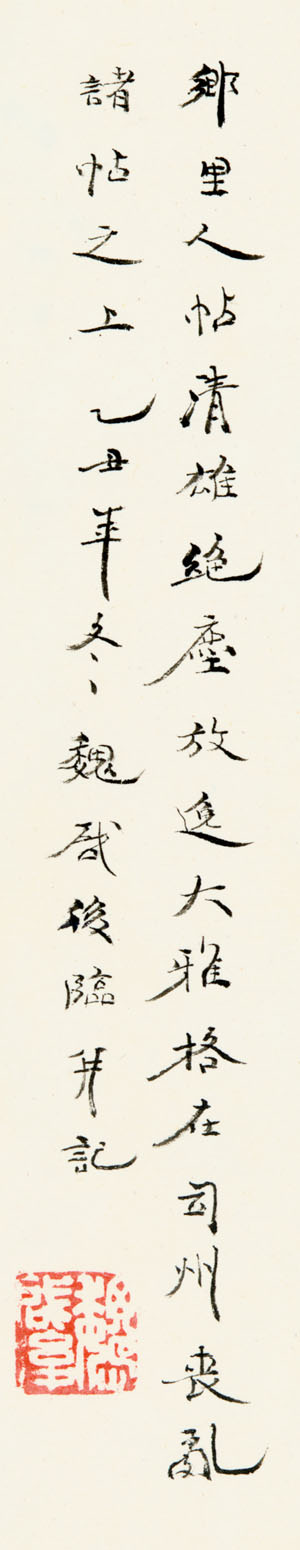 鄉里人帖清雄絕塵放逸大雅格在司州喪亂
諸帖之上乙丑年冬魏啟後臨并記